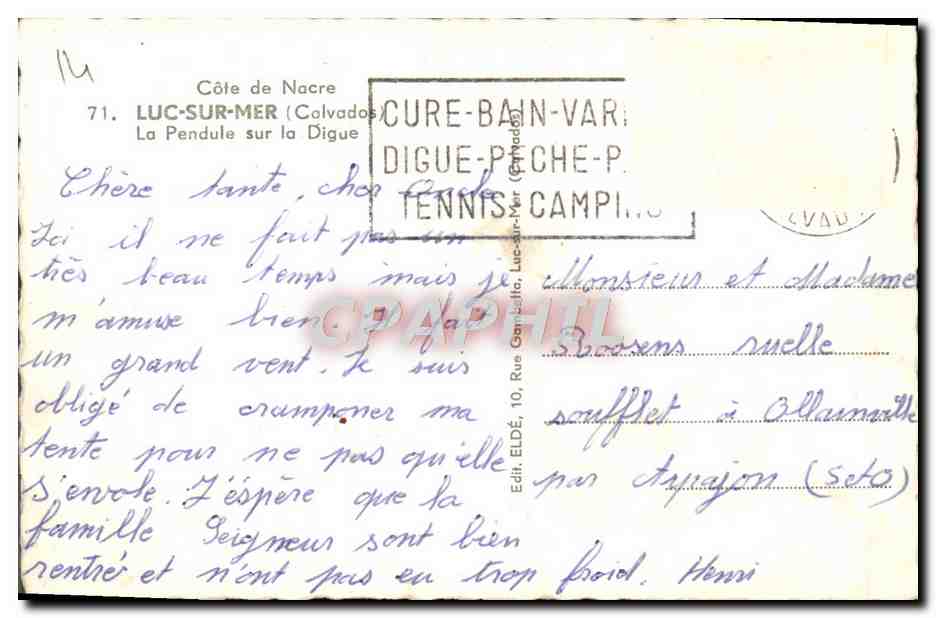 14
Côte de Nacre
71. LUC-SUR-MER (Calvados)
La Pendule sur la Digue
CURE-BAIN-VAR
DIGUE-PECHE-P
TENNIS-CAMPING
VAD
Chère tante, cher Oncle
Ici il ne fait pas un
très beau temps mais je
m'amuse bien. Il fait
un grand vent. Je suis
obligé de cramponer ma
tente pour ne pas qu'elle
s'envole. J'éspère que la
famille Seigneur sont bien
rentré et n'ont pas eu trop froid. Henri
Edit. ELDÉ, 10, Rue Gambetta, Luc-sur-Mer (Calvados)
Monsieur et Madame
Roosens ruelle
soufflet à Ollainville
par Arpajon (S et O)
CPAPHIL